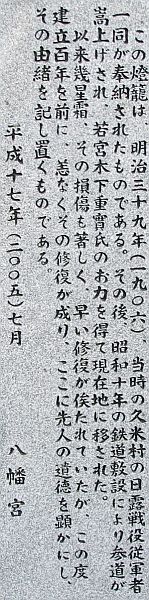 この燈籠は、明治三十九年(一九〇六)、当時の久米村の日露戦役従軍者
一同が奉納されたものである。その後、昭和十年の鉄道敷設により参道が
嵩上げされ、若宮木下重寅氏のお力を得て現在地に移された。
以来幾星霜、その損傷も著しく、早い修復が俟たれていたが、この度
建立百年を前に、恙なくその修復が成り、ここに先人の遺徳を顕かにし、
その由緒を記し置くものである。
平成十七年(二〇〇五)七月　八幡宮